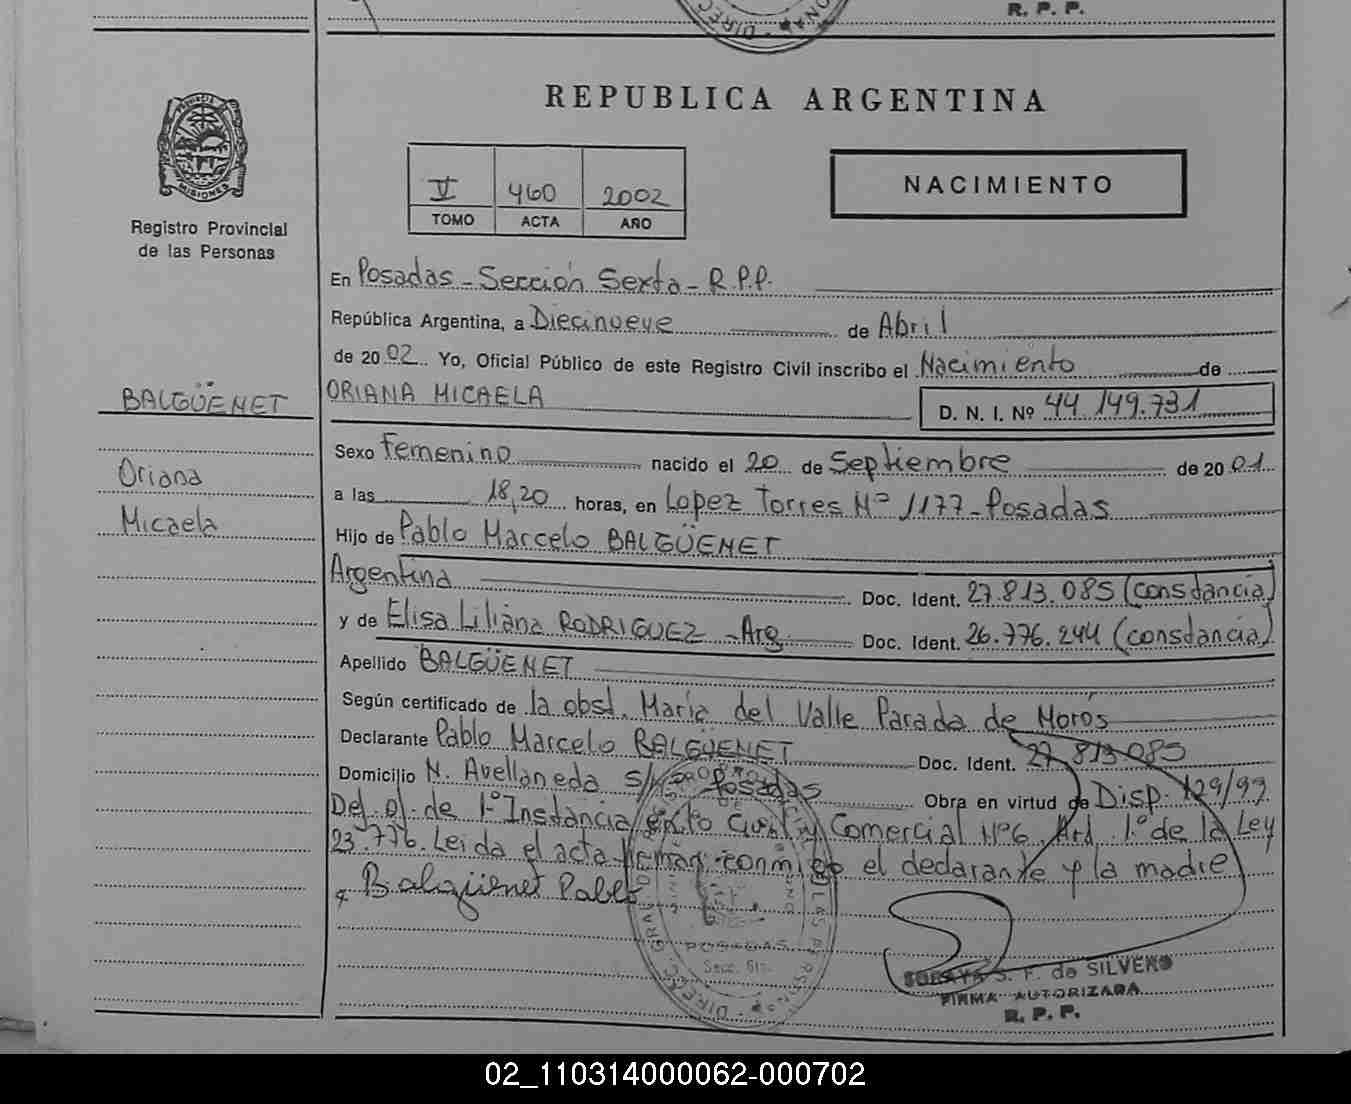 R. P. P.
DIREC
REPUBLICA ARGENTINA
PROVINCIA DE
MISIONES
Registro Provincial
de las Personas
V 460 2002
TOMO ACTA AÑO
NACIMIENTO
En Posadas - Sección Sexta - R.P.P.
República Argentina, a Diecinueve de Abril
de 2002 Yo, Oficial Público de este Registro Civil inscribo el Nacimiento de
BALGÜENET
ORIANA MICAELA D. N. I. Nº 44 149.731
Oriana
Micaela
Sexo Femenino nacido el 20 de Septiembre de 2001
a las 18,20 horas, en Lopez Torres Nº 1177 - Posadas
Hijo de Pablo Marcelo BALGÜENET
Argentina Doc. Ident. 27.813.085 (constancia)
y de Elisa Liliana RODRIGUEZ - Arg. Doc. Ident. 26.776.244 (constancia)
Apellido BALGÜENET
Según certificado de la obst. María del Valle Parada de Morós
Declarante Pablo Marcelo BALGÜENET Doc. Ident. 27 813 085
Domicilio N. Avellaneda s/n Posadas Obra en virtud de Disp. 129/99
Del of. de 1º Instancia en lo Civil y Comercial Nº 6 Art. 1º de la Ley
23.776. Leida el acta firman conmigo el declarante y la madre
Balgüenet Pablo
POSADAS
Secc. 6ta.
SORAYA S. F. de SILVERO
FIRMA AUTORIZADA
R. P. P.
02_110314000062-000702